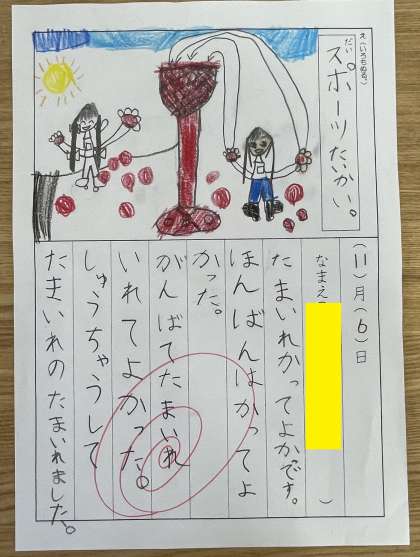 え(いろもぬる)
だい スポーツたいかい。
(11)月(6)日
なまえ( )
たまいれかってよかです。
ほんばんはかってよ
かった。
がんばてたまいれ
いれてよかった。
しゅうちゃうして
たまいれのたまいれました。